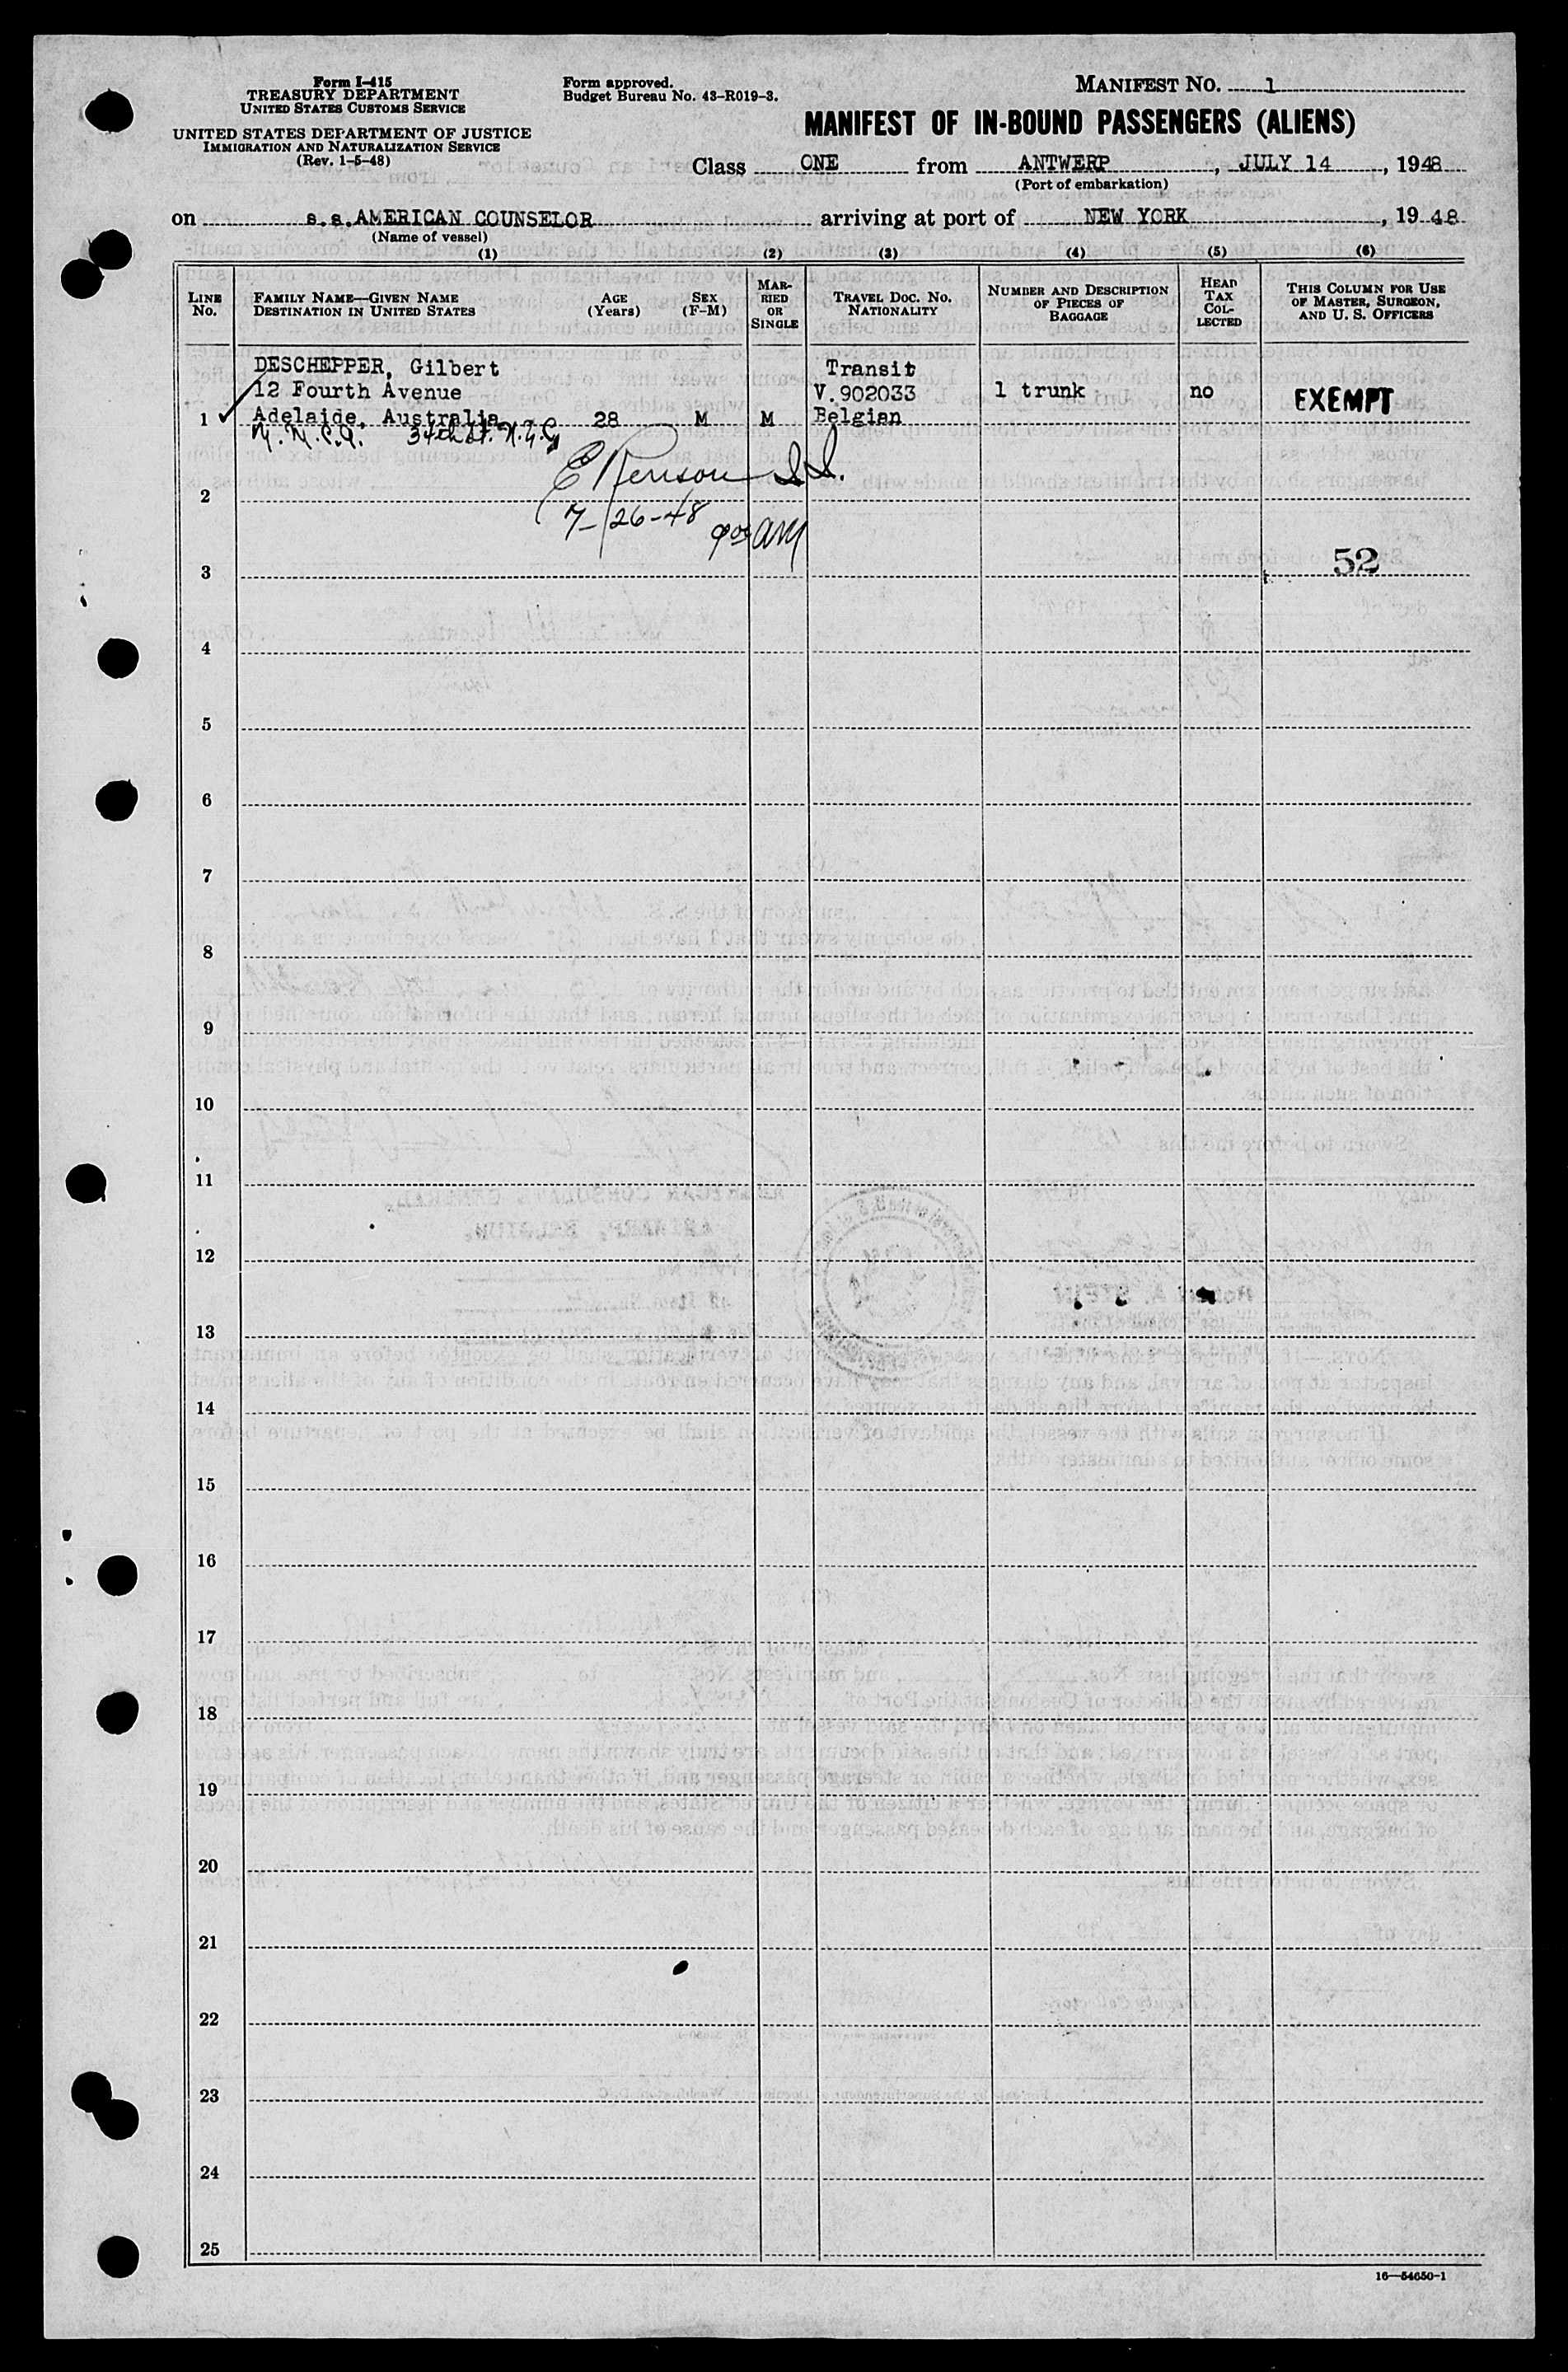 Form I-415
TREASURY DEPARTMENT
UNITED STATES CUSTOMS SERVICE
UNITED STATES DEPARTMENT OF JUSTICE
IMMIGRATION AND NATURALIZATION SERVICE
(Rev. 1-5-48)
Form approved.
Budget Bureau No. 43-R019-3.
MANIFEST NO. 1
MANIFEST OF IN-BOUND PASSENGERS (ALIENS)
Class ONE from ANTWERP, JULY 14, 1948
(Port of embarkation)
on s.s. AMERICAN COUNSELOR arriving at port of NEW YORK, 1948
(Name of vessel)
(1) (2) (3) (4) (5) (6)
LINE NO. FAMILY NAME—GIVEN NAME DESTINATION IN UNITED STATES AGE (Years) SEX (F-M) MARRIED OR SINGLE TRAVEL DOC. NO. NATIONALITY NUMBER AND DESCRIPTION OF PIECES OF BAGGAGE HEAD TAX COLLECTED THIS COLUMN FOR USE OF MASTER, SURGEON, AND U. S. OFFICERS
DESCHEPPER, Gilbert Transit
12 Fourth Avenue V.902033 1 trunk no EXEMPT
1 Adelaide, Australia 28 M M Belgian
Y.M.C.A. 34th St. N.Y.C.
2
7-26-48
3 52
4
5
6
7
8
9
10
11
12
13
14
15
16
17
18
19
20
21
22
23
24
25
16—54650-1